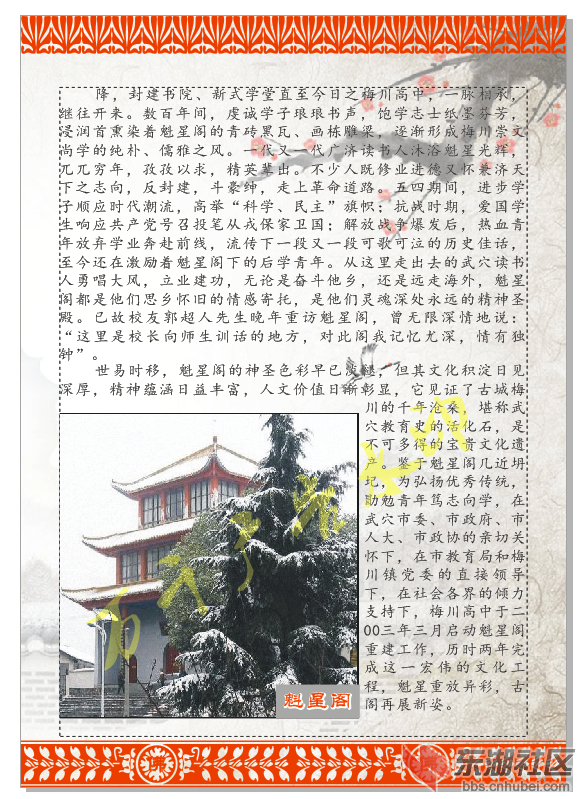 降，封建书院、新式学堂直至今日之梅川高中，一脉相承，
继往开来。数百年间，虔诚学子琅琅书声，饱学志士纸墨芬芳，
浸润首熏染着魁星阁的青砖黑瓦、画栋雕梁，逐渐形成梅川崇文
尚学的纯朴、儒雅之风。一代又一代广济读书人沐浴魁星光辉，
兀兀穷年，孜孜以求，精英辈出。不少人既修业进德又怀兼济天
下之志向，反封建，斗豪绅，走上革命道路。五四期间，进步学
子顺应时代潮流，高举“科学、民主”旗帜：抗战时期，爱国学
生响应共产党号召投笔从戎保家卫国；解放战争爆发后，热血青
年放弃学业奔赴前线，流传下一段又一段可歌可泣的历史佳话，
至今还在激励着魁星阁下的后学青年。从这里走出去的武穴读书
人勇唱大风，立业建功，无论是奋斗他乡，还是远走海外，魁星
阁都是他们思乡怀旧的情感寄托，是他们灵魂深处永远的精神圣
殿。已故校友郭超人先生晚年重访魁星阁，曾无限深情地说：
“这里是校长向师生训话的地方，对此阁我记忆尤深，情有独
钟”。
世易时移，魁星阁的神圣色彩早已淡褪，但其文化积淀日见
深厚，精神蕴涵日益丰富，人文价值日渐彰显，它见证了古城梅
川的千年沧桑，堪称武
穴教育史的活化石，是
不可多得的宝贵文化遗
产。鉴于魁星阁几近坍
圮，为弘扬优秀传统，
励勉青年笃志向学，在
武穴市委、市政府、市
人大、市政协的亲切关
怀下，在市教育局和梅
川镇党委的直接领导
下，在社会各界的倾力
支持下，梅川高中于二
00三年三月启动魁星阁
重建工作，历时两年完
成这一宏伟的文化工
程，魁星重放异彩，古
阁再展新姿。
魁星阁
东湖社区
bbs.cnhubei.com